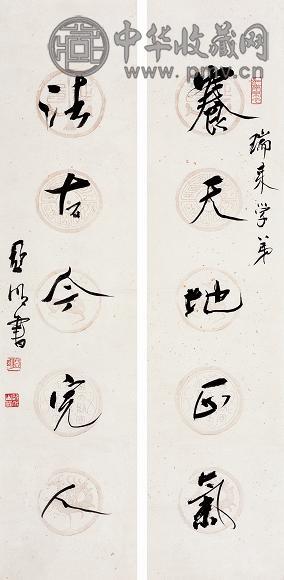 中华收藏网
www.pmv.cn
瑞来学弟
養天地正氣
法古今完人
亚明書